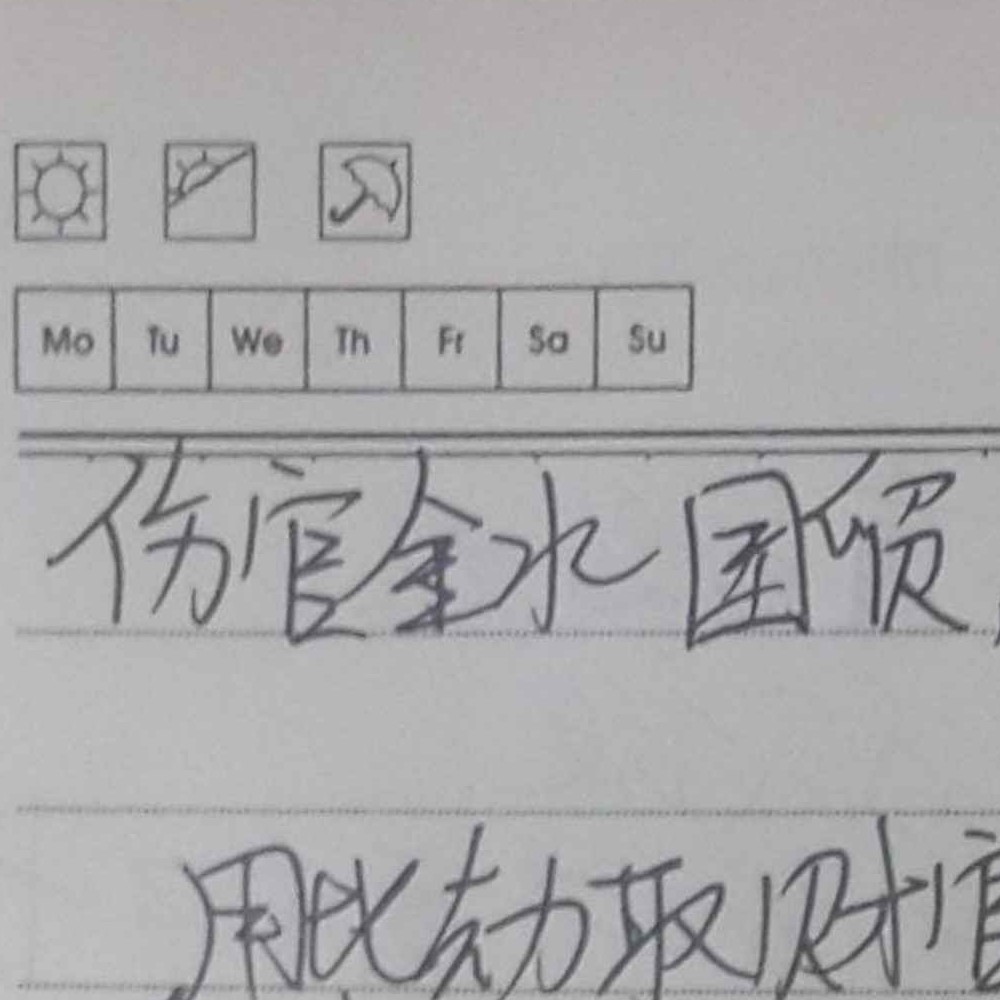 Mo Tu We Th Fr Sa Su
伤官金水
用比劫取财官